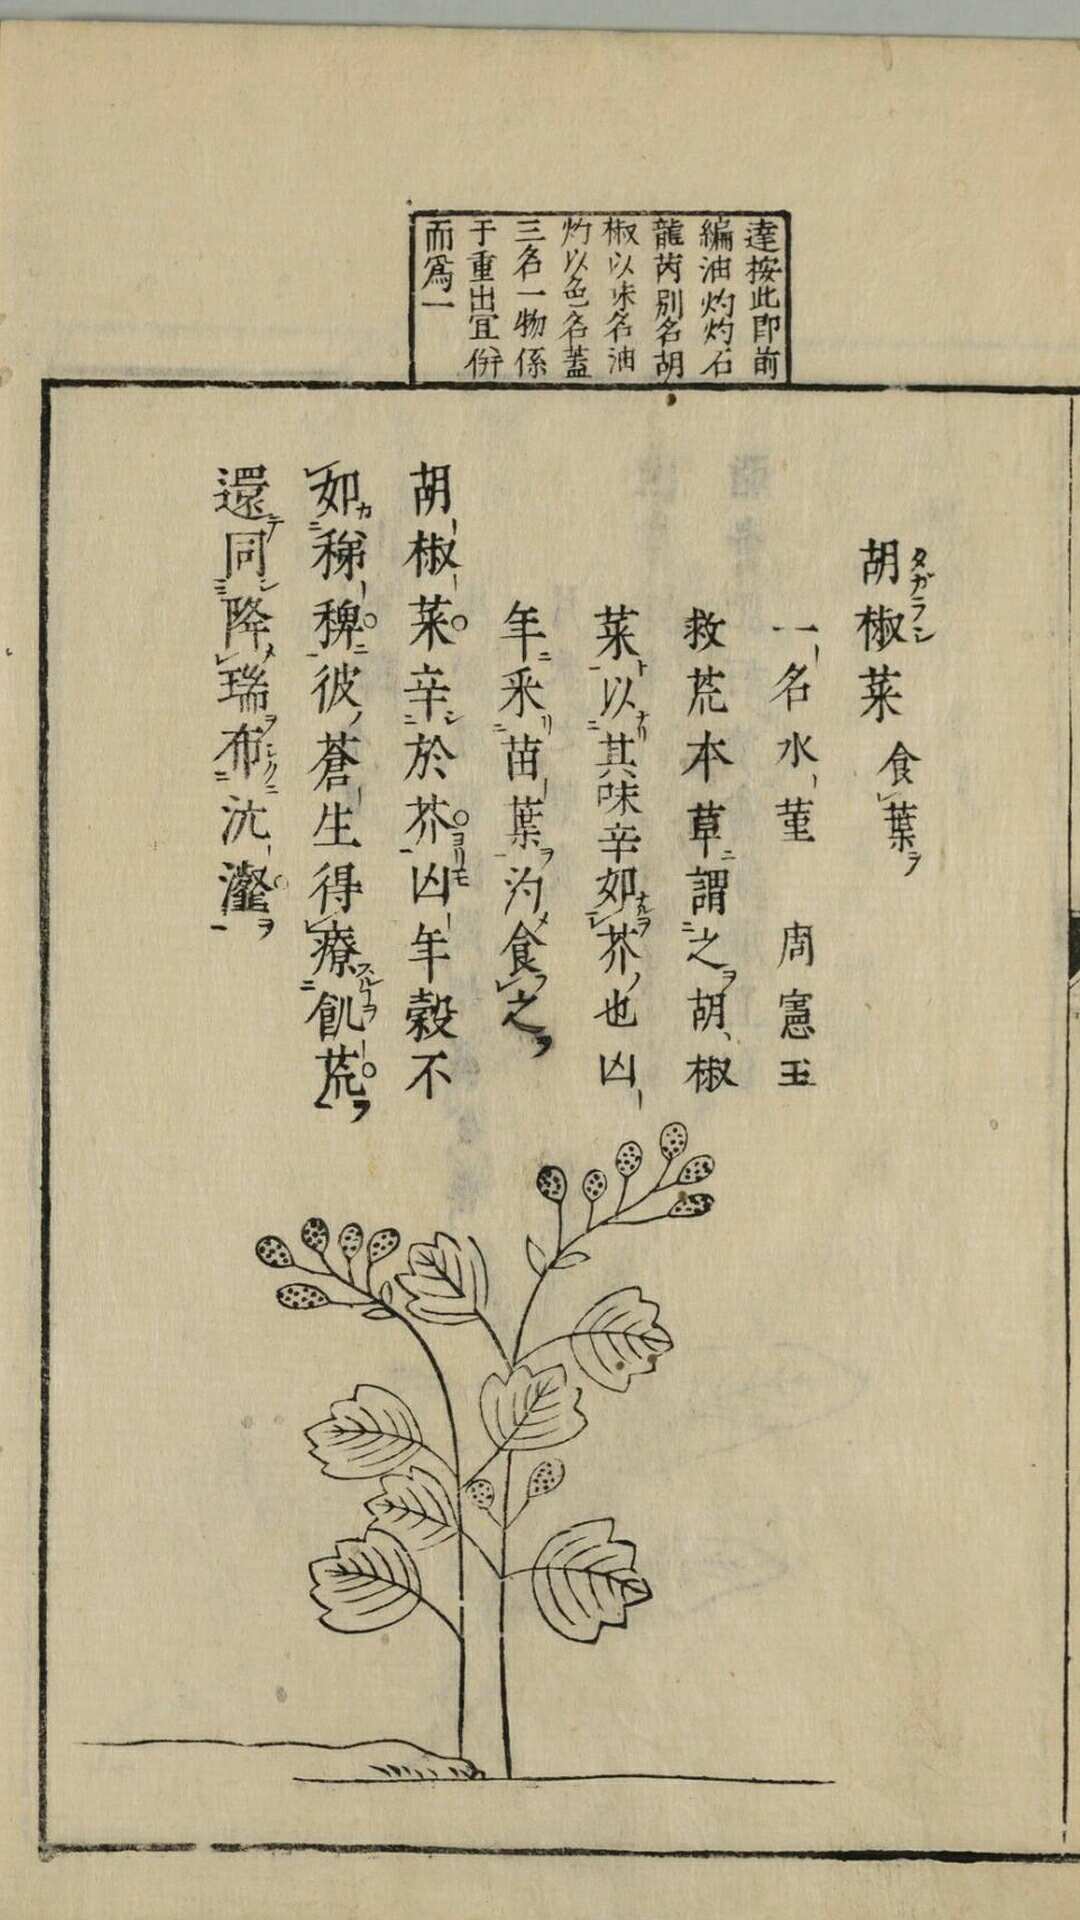 達按此即前
編油灼灼石
龍芮別名胡
椒以味名油
灼以色名蓋
三名一物係
于重出宜併
而爲一
胡椒菜 食葉ヲ
タガラシ
一名水菫 周憲王
救荒本草謂之胡椒
菜以其味辛如芥也凶
年采苗葉汋食之
胡椒菜辛於芥凶年穀不
如稊稗彼蒼生得療飢荒
還同降瑞布沆瀣